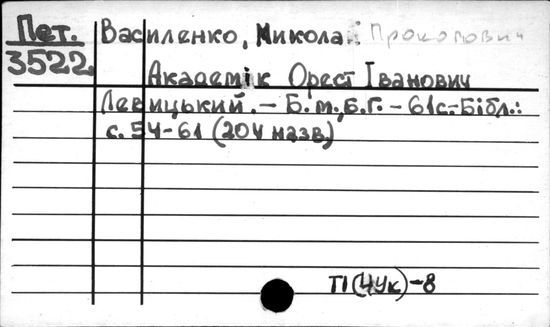 Пет. Василенко, Микола Прокопович
3522
Академік Орест Іванович
Левицький. – Б. м., Б.Г. – 61с.-Бібл.:
с. 54-61 (204 назв.)
ТІ(4Ук)-8